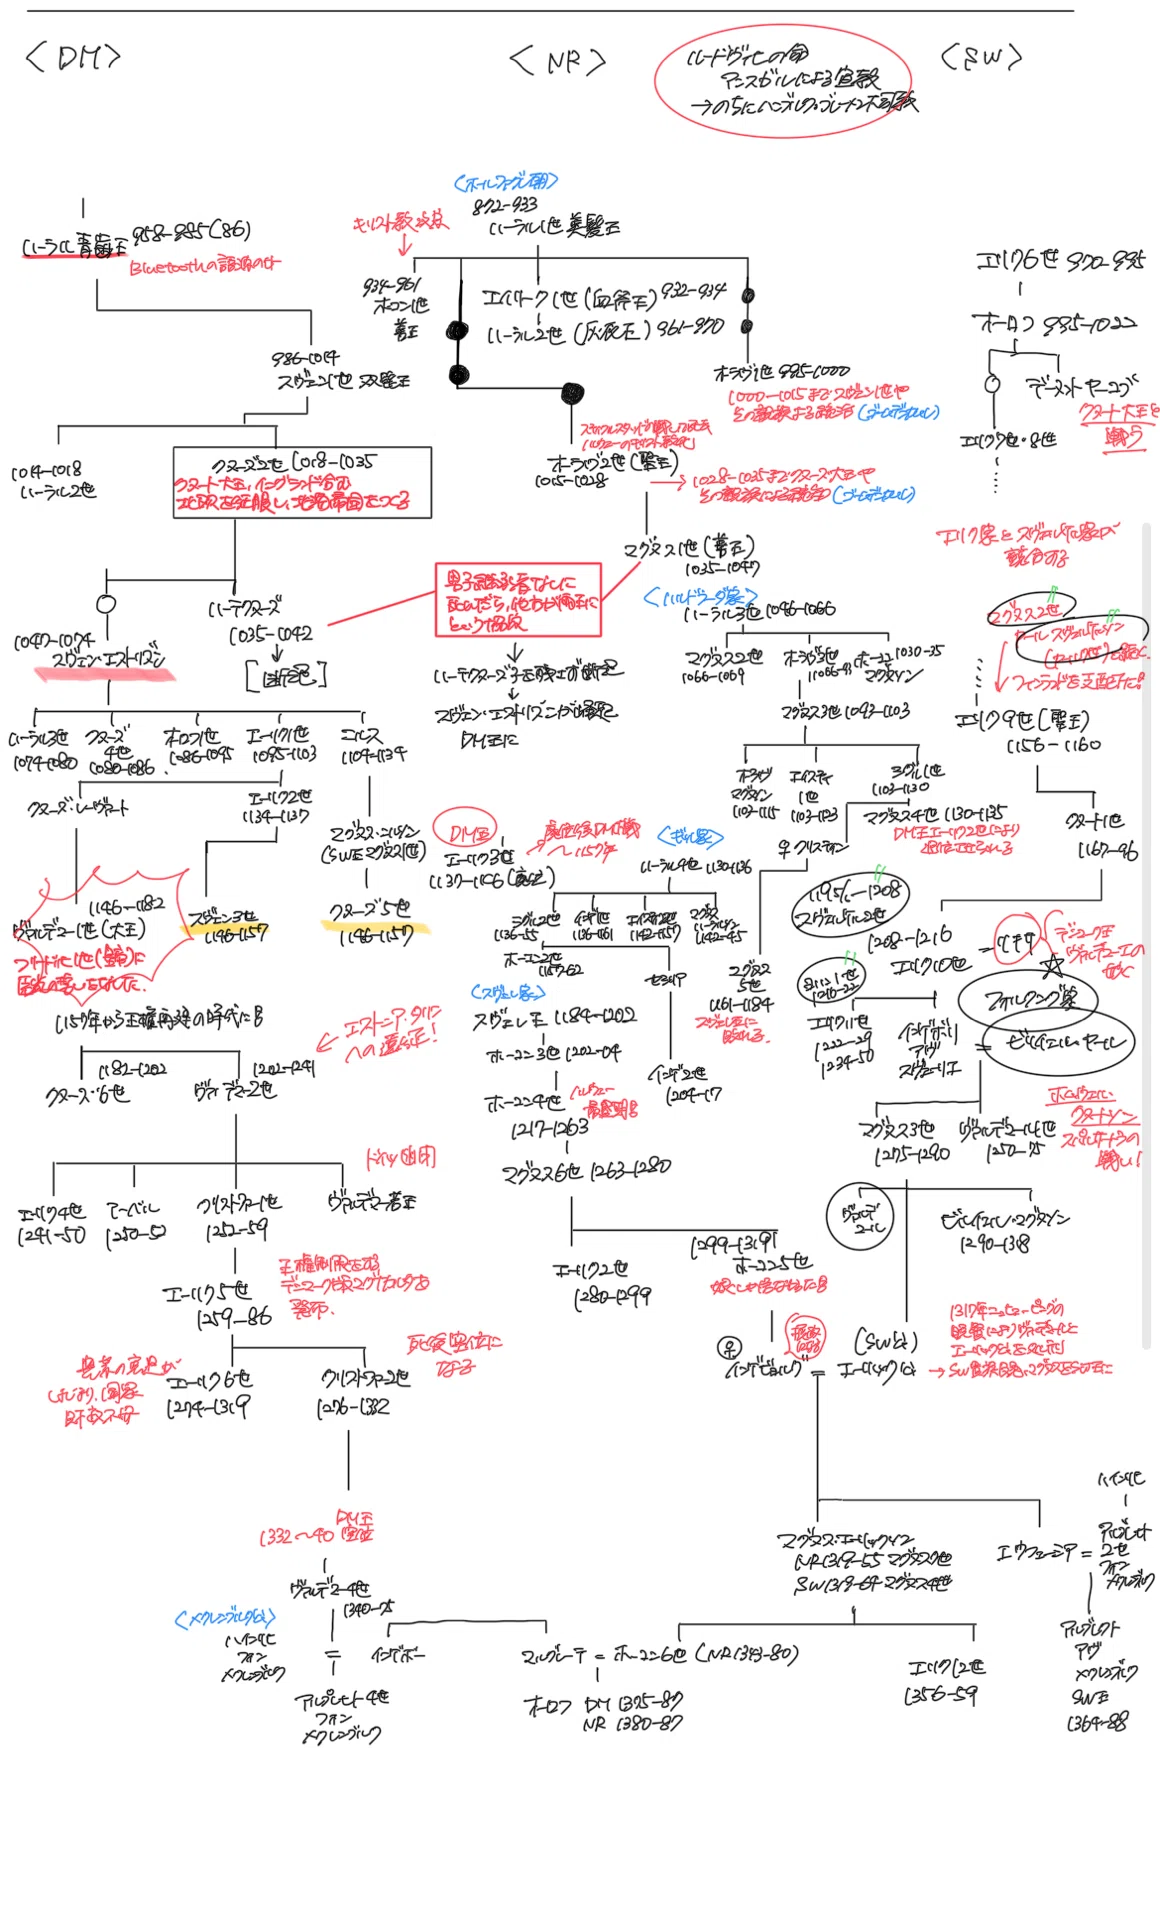 <DM>
<NR>
<SW>
ルードヴィヒの命
アンスガルによる宣教
→のちにハンブルク・ブレーメン大司教
ハーラル青歯王 958-985(86)
Bluetoothの語源の方
986-1014
スヴェン1世 双髭王
1014-1018
ハーラル2世
クヌーズ2世 1018-1035
クヌート大王、イングランド含む
北欧を征服し、北海帝国をつくる
1047-1074
スヴェン・エストリズン
ハーデクヌーズ
1035-1042
[断絶]
ハーラル3世
1074-1080
クヌーズ
4世
1080-1086
オロフ1世
1086-1095
エーリク1世
1095-1103
ニルス
1104-1134
クヌーズ・レーヴァート
エーリク2世
1134-1137
マグヌス・ニルソン
(SW王マグヌス1世)
1146-1182
ヴァルデマー1世(大王)
スヴェン3世
1146-1157
クヌーズ5世
1146-1157
1157年から王権再建の時代に
エストニア・タリン
への遠征!
1182-1202
クヌーズ6世
1202-1241
ヴァルデマー2世
エーリク4世
1241-50
アーベル
1250-52
クリストファ1世
1252-59
ヴァルデマー若王
エーリク5世
1259-86
王権制限をする
デンマーク版マグナカルタを
発布.
エーリク6世
1274-1319
クリストファ2世
1276-1332
死後空位に
なる
DM王
1332~40 空位
ヴァルデマー4世
1340-75
<メクレンブルク公>
ハインリヒ
フォン
メクレンブルク
=
インゲボー
アルブレヒト4世
フォン
メクレンブルク
<ホールファグレ朝>
872-933
ハーラル1世 美髪王
キリスト教改宗
934-961
ホーコン1世
善王
エイリーク1世(血斧王) 932-934
ハーラル2世(灰衣王) 961-970
オラヴ1世 995-1000
1000-1015までスヴェン1世や
その親族による統治
オーラヴ2世(聖王)
1015-1028
→1028-1035までクヌーズ大王や
その親族による統治
マグヌス1世(善王)
1035-1047
男子継承者なしに
死んだら、他方が両王に
という協定
ハーデクヌーズ子を残さず断絶
スヴェン・エストリズンが最終
DM王に
<ハルドラーダ家>
ハーラル3世 1046-1066
マグヌス2世
1066-1069
オーラヴ3世
1066-93
ホーコン
マグヌソン
マグヌス3世 1093-1103
オラヴ
マグヌソン
1103-1115
エイステイン
1世
1103-1123
シグル1世
1103-1130
マグヌス4世 1130-1135
DM王エーリク2世により
退位させられる
クリスティン
DM王
エーリク3世
1137-1146
<ギル家>
ハーラル4世 1130-1136
シグル2世
1136-55
インゲ1世
1136-1161
エイステイン2世
1142-1157
マグヌス
ハーラルソン
1142-45
ホーコン2世
1157-62
マグヌス
5世
1161-1184
スヴェレ王に
殺される.
<スヴェレ家>
スヴェレ王 1184-1202
ホーコン3世 1202-04
ホーコン4世
1217-1263
ノルウェー
最盛期
インゲ2世
1204-17
マグヌス6世 1263-1280
エーリク2世
1280-1299
1299-1319
ホーコン5世
娘しか居なかった
インゲビョルグ
=
(SW公)
エーリック公
マグヌス・エーリックソン
NR1319-55 マグヌス7世
SW1319-64 マグヌス4世
マルグレーテ = ホーコン6世 (NR1343-80)
オーロフ DM 1375-87
NR 1380-87
エリク12世
1356-59
エリク6世 970-995
オーロフ 995-1022
アーヌンド・ヤーコブ
クヌート大王と
戦う
エリク7世・8世
エリク家とスヴェルケル家が
競合する
マグヌス2世
カール・スヴェルケルソン
フィンランドを支配下に!
エリク9世(聖王)
1156-1160
クヌート1世
1167-96
1195/6-1208
スヴェルケル2世
1208-1216
エリク10世
=
リキサ
デンマーク王
ヴァルデマー1世の
娘
ヨハン1世
1216-22
エリク11世
1222-29
1234-50
インゲボリ
アヴ
スヴェーリエ
=
フォルクング家
ビルイェル・ヤール
マグヌス3世
1275-1290
ヴァルデマール1世
1250-75
ホルムゲル・
クヌートソン
スパルサートラの
戦い!
ビルイェル・マグヌソン
1290-1318
1317年ニュヒェーピングの
→SW貴族団、マグヌスをSW王に
エウフェーミア =
ハインリヒ
アルブレヒト
2世
フォン
メクレンブルク
アルブレクト
アヴ
メクレンブルク
SW王
1364-88